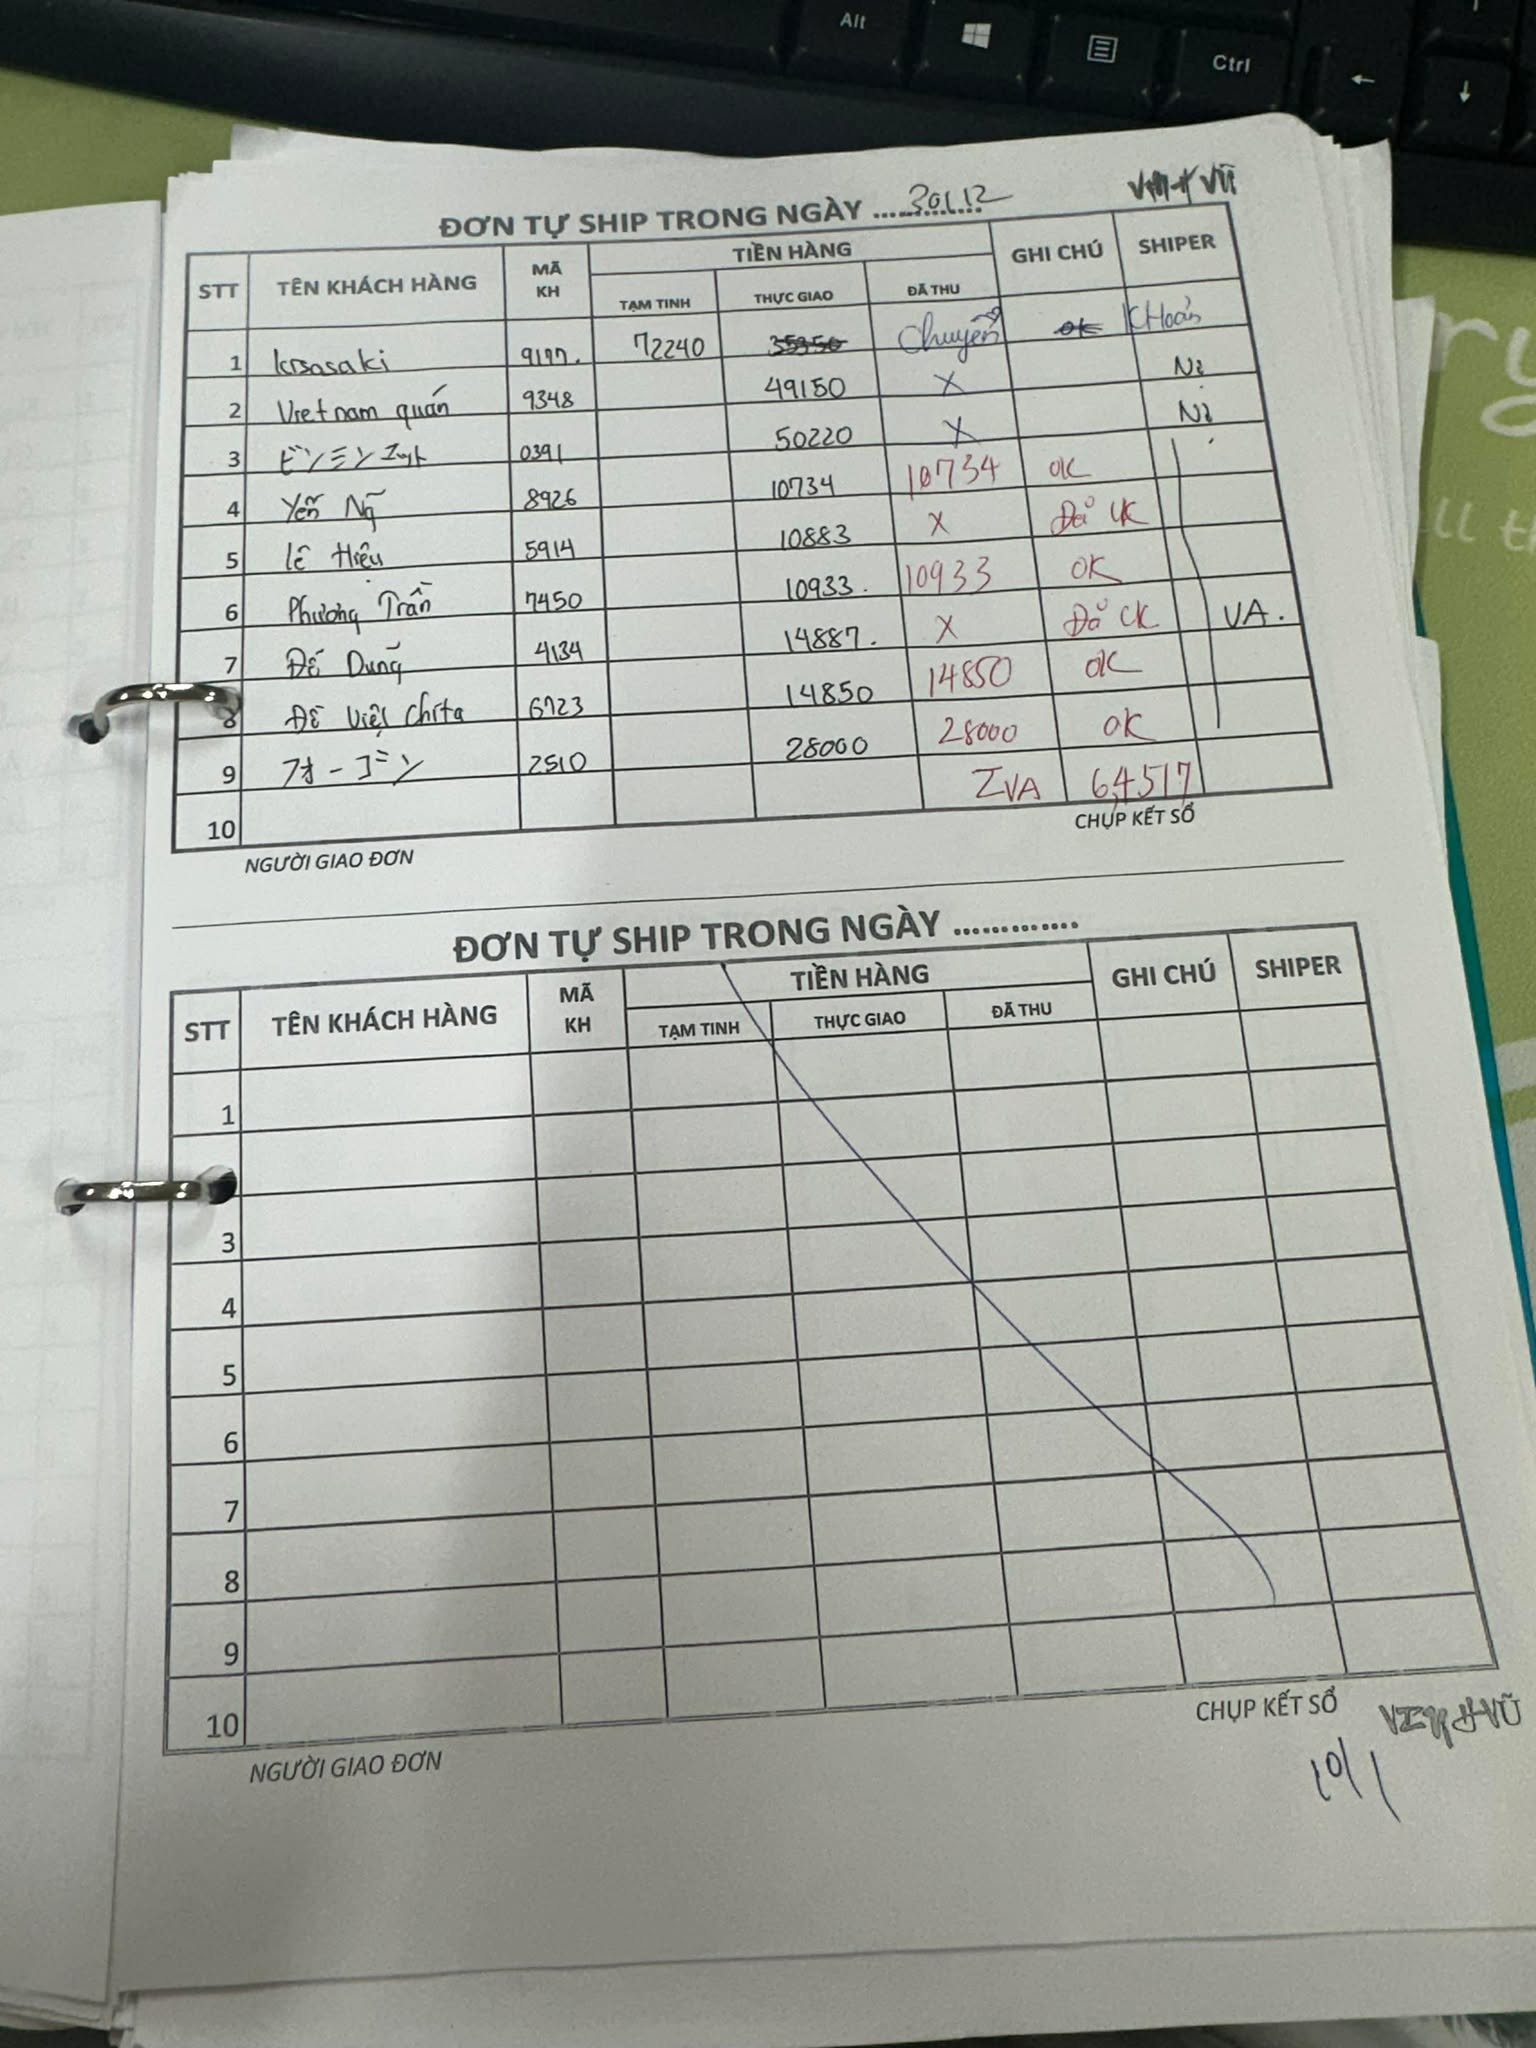 Alt
Ctrl
ĐƠN TỰ SHIP TRONG NGÀY ....30/12
STT TÊN KHÁCH HÀNG MÃ KH TIỀN HÀNG GHI CHÚ SHIPER
TẠM TINH THỰC GIAO ĐÃ THU
1 9197. 72240 35350 chuyển ok KHoản
2 Vietnam quán 9348 49150 X Ni
3 0391 50220 X Ni
4 Yến Ng 8926 10734 10734 ok
5 Lê Hiệu 5914 10883 X Đã CK
6 Phương Trần 7450 10933. 10933 OK
7 Đế Dung 4134 14887. X Đã CK VA.
8 Đê Việt Chita 6723 14850 14850 ok
9 フォーゴン 2510 28000 28000 OK
10 ΣVA 64,517
NGƯỜI GIAO ĐƠN CHỤP KẾT SỔ
ĐƠN TỰ SHIP TRONG NGÀY .............
STT TÊN KHÁCH HÀNG MÃ KH TIỀN HÀNG GHI CHÚ SHIPER
TẠM TINH THỰC GIAO ĐÃ THU
1
3
4
5
6
7
8
9
10
NGƯỜI GIAO ĐƠN CHỤP KẾT SỔ
10/1